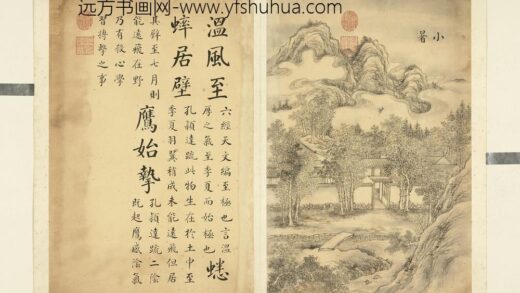 远方书画网-www.yfshuhua.com
小暑
溫風至
六經天文編至極也言溫
厚之氣至季夏而始極也
蟋
蟀居壁
孔頴達疏此物生在於土中至
季夏羽翼稍成未能遠飛但居
其壁至七月則
能遠飛在野
鷹始摯
孔頴達疏二陰
既起鷹感陰氣
乃有殺心學
習搏擊之事
www.yfshuhua.com